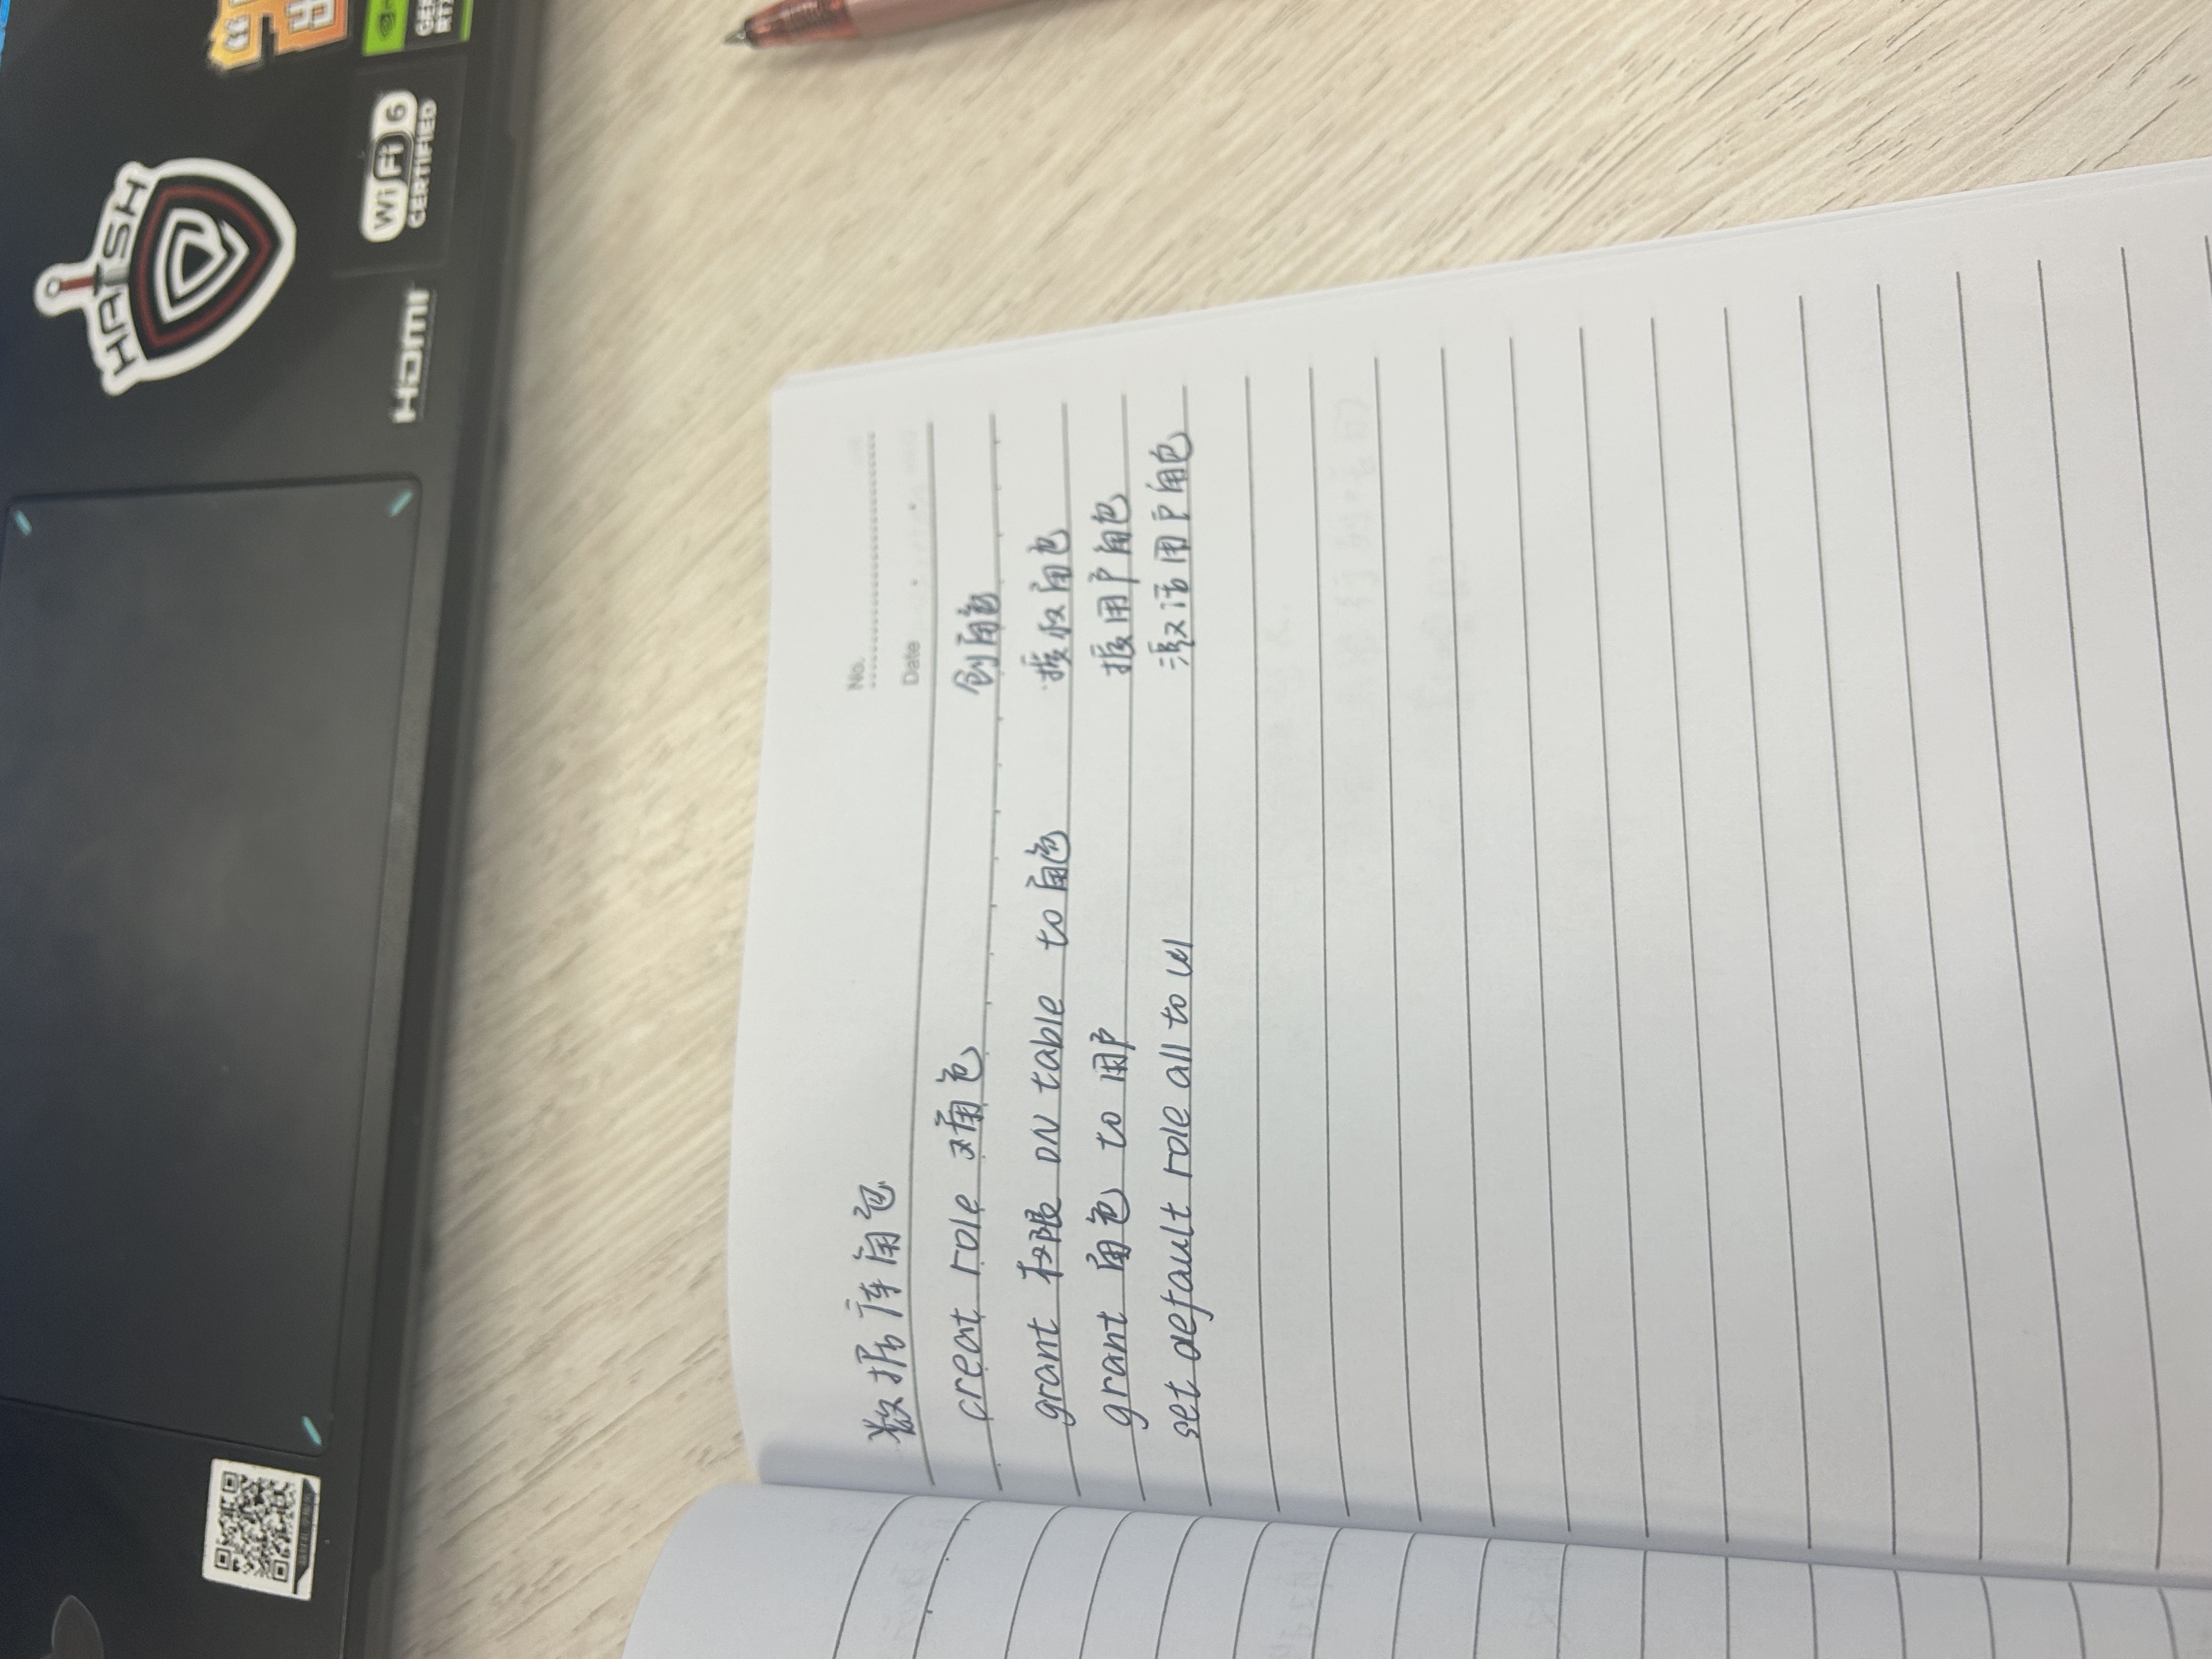 HATSH
HDMI
WiFi 6
CERTIFIED
GE
RT
数据库角色
No.
Date
creat role 角色 创角色
grant 权限 ON table to 角色 授权角色
grant 角色 to 用户 授用户角色
set default role all to u1 激活用户角色